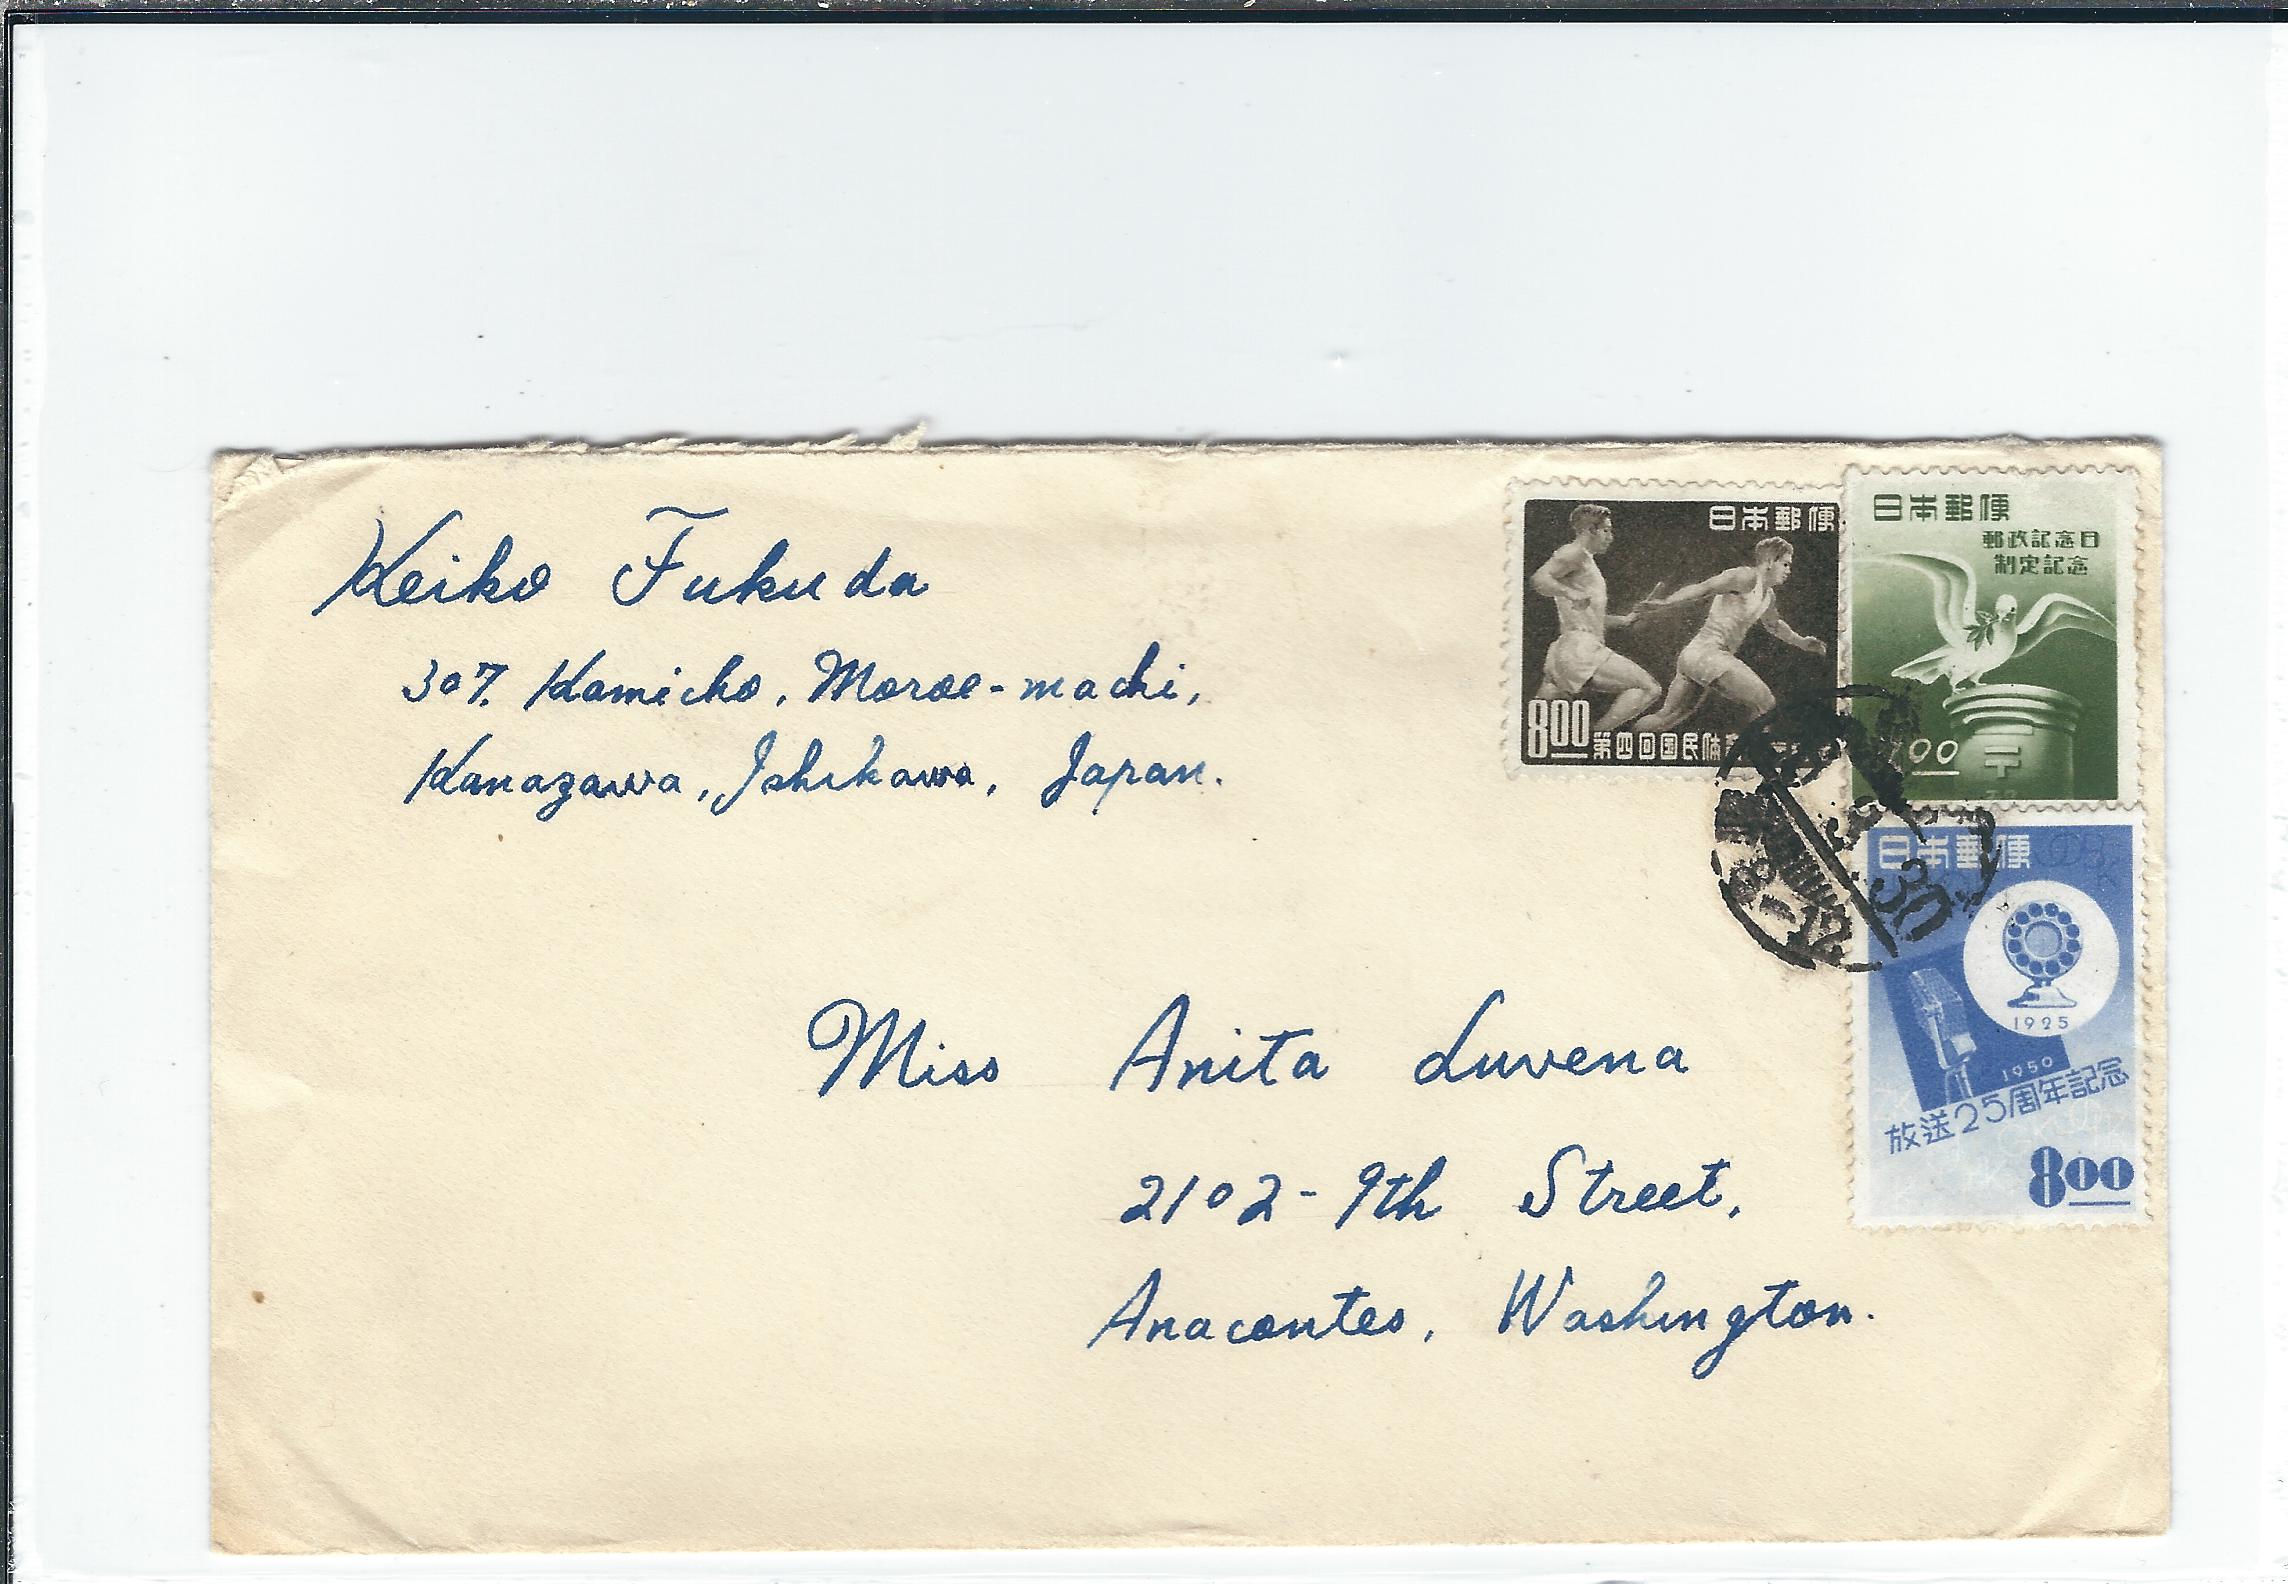 Keiko Fukuda
307. Kamicho, Moroe-machi,
Kanazawa, Ishikawa, Japan.
日本郵便
8.00 第四回国民体
日本郵便
郵政記念日
制定記念
00
〒
日本郵便
1925
1950
放送25周年記念
8.00
30
Miss Anita Luvena
2102-9th Street,
Anacontes, Washington.